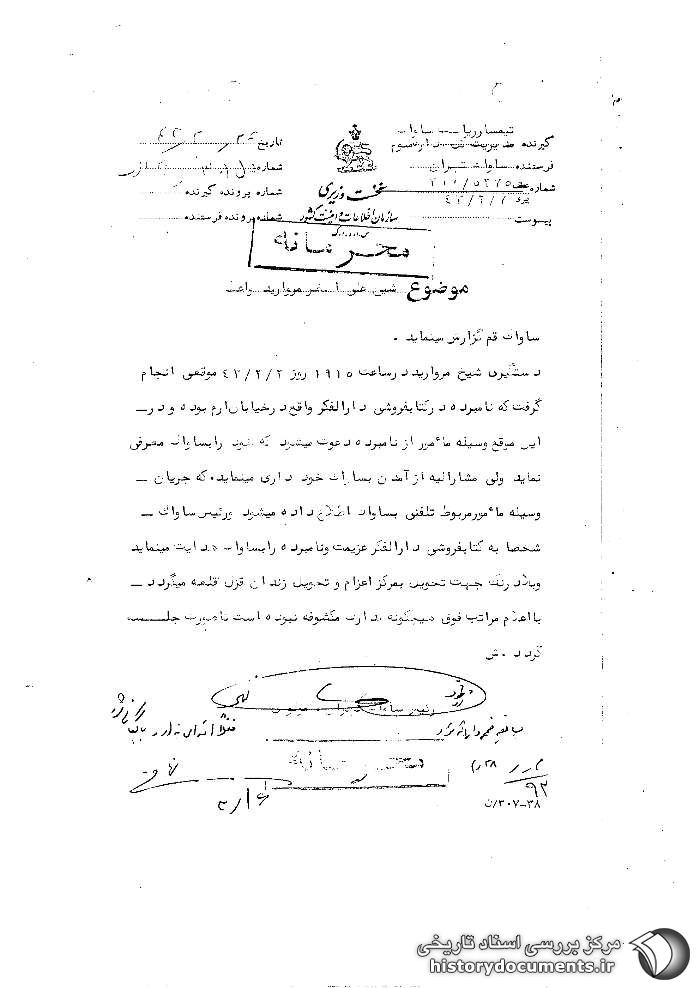 تیمساور ریا ساوا
گیرنده مدیریت اداره سوم
فرستنده ساواک تهران
شماره ۲۱۰/۵۲۷۵
پیوست
نخست وزیری
سازمان اطلاعات و امنیت کشور
تاریخ
شماره
شماره پرونده گیرنده
شماره پرونده فرستنده
محرمانه
موضوع شیخ علی اصغر مروارید واعظ
ساواک قم گزارش مینماید .
دستگیری شیخ مروارید در ساعت ۱۹۱۵ روز ۴۲/۲/۲ موقعی انجام
گرفت که نامبرده در کتابفروشی دارالفکر واقع در خیابان ارم بوده و در
این موقع وسیله مأمور از نامبرده دعوت میشود که خود را بساواک معرفی
نماید ولی مشارالیه از آمدن بساواک خودداری مینماید. که جریان
وسیله مأمور مربوط تلفنی بساواک اطلاع داده میشود ورئیس ساواک
شخصا به کتابفروشی دارالفکر عزیمت ونامبرده را بساواک هدایت مینماید
وبلادرنگ جهت تحویل بمرکز اعزام و تحویل زندان قزل قلعه میگردد
با اعلام مراتب فوق هیچگونه مدارک مکشوفه نبوده است تا صورت جلسه
گردد. ش
رئیس ساواک تهران
فعلاً
محرمانه
۲۸
۹۲
۳۰۷-۳۸/ن
مرکز بررسی اسناد تاریخی
historydocuments.ir